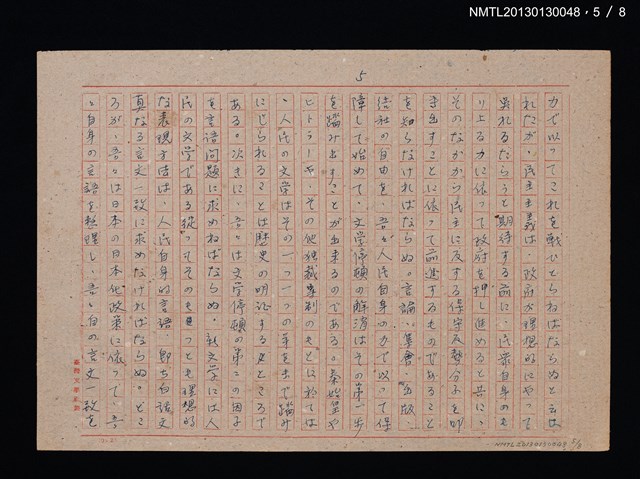 NMTL20130130048，5 / 8
5
力で以ってこれを戦ひとらねばならぬと云は
れたが、民主主義は、政府が理想的にやって
呉れるだらうと期待する前に、民衆自身のも
り上る力に依って政府を押し進めると共に、
そのなかから民主に反する保守反動分子を叩
き出すことに依って前進するものであること
を知らなければならぬ。言論、集会、出版、
結社の自由を、吾が人民自身の力で以って保
障して始めて、文学停頓の解消はその第一歩
を踏み出すことが出来るのである。秦始皇や
ヒトラーや、その他独裁専制のもとに於ては
、人民の文学はその一つ一つの芽を出で踏み
にじられることは歴史の明証するところで
ある。次きに、吾々は文学停頓の第二の因子
を言語問題に求めねばならぬ。新文学には人
民の文学である。従ってそのもっとも理想的
な表現方法は、人民自身的言語、即ち白話文
真なる言文一致に求めなければならぬ。どこ
ろが、吾々は日本の日本化政策に依って、吾
々自身の言語を整理し、吾々自の言文一致を
NMTL20130130048 5/8